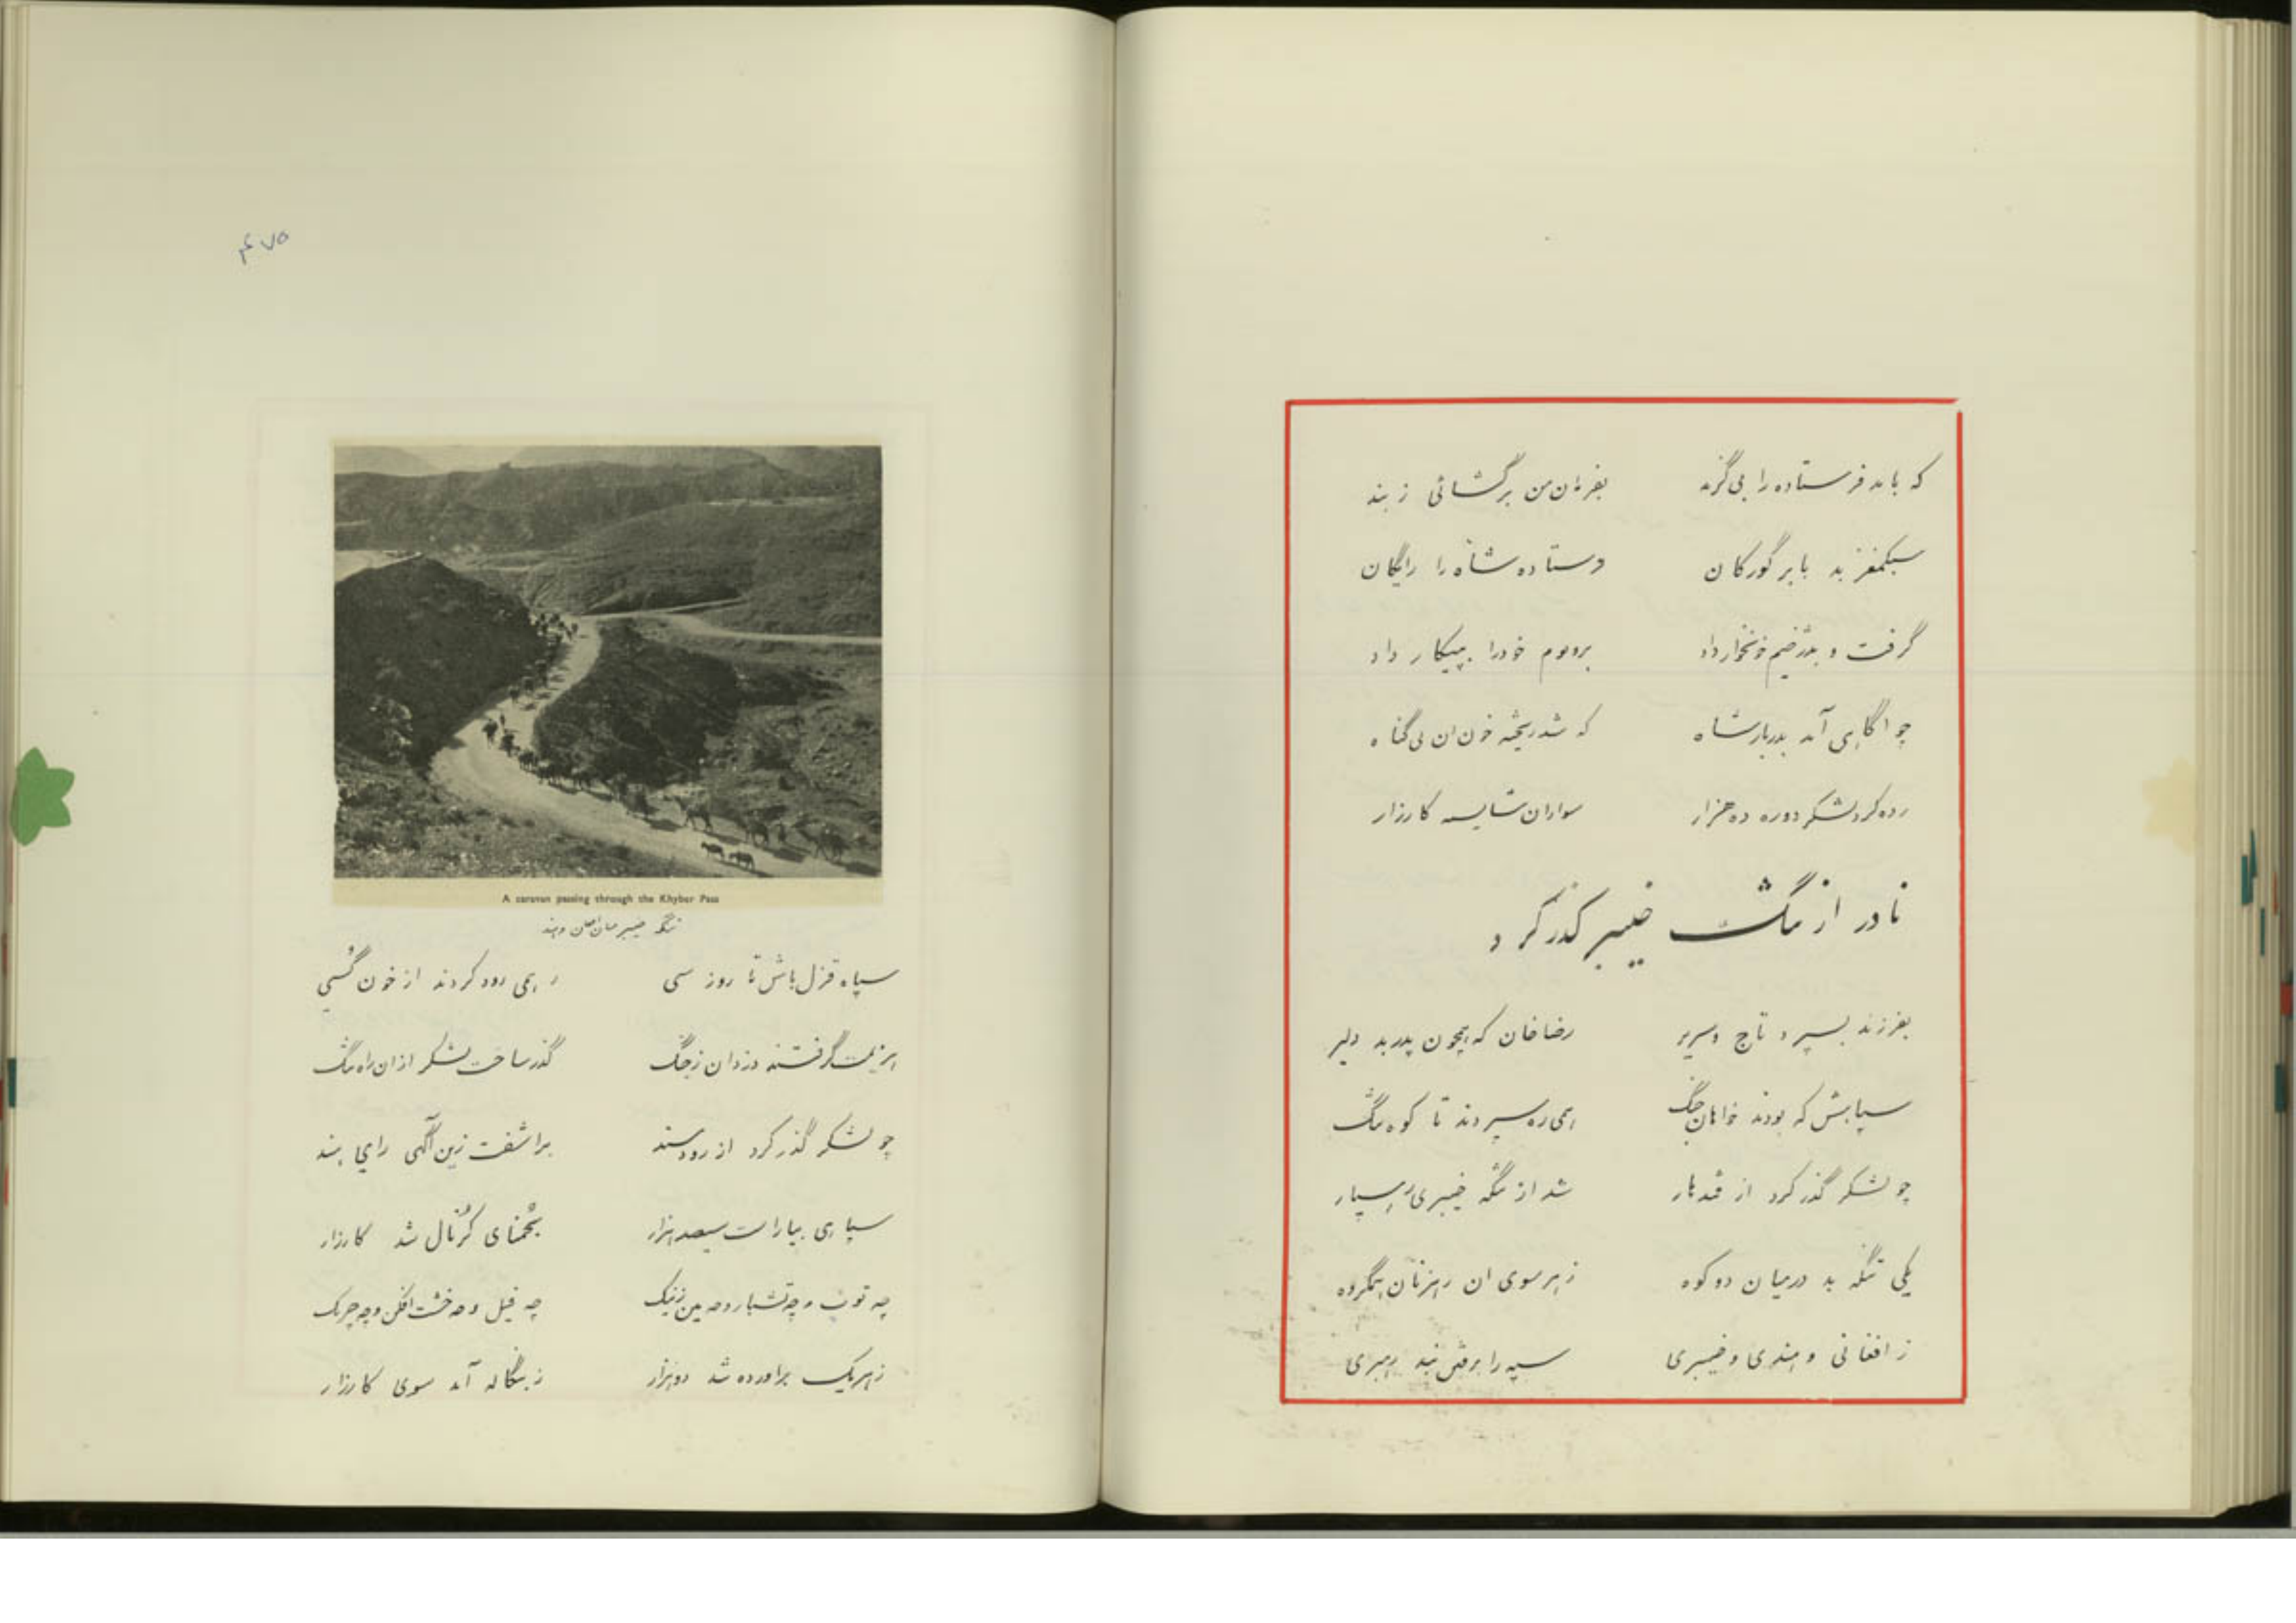 که باید فرستاده را بی‌گزند بفرمان من برگشائی ز بند
سبکمغز بد بابر گورکان فرستاده شاه را رایگان
گرفت و بدژخیم خونخوار داد بروبوم خودرا بپیکار داد
چو اگاهی آمد بدربار شاه که شد ریخته خون ان بی‌گناه
رده کرد لشکر دوره ده هزار سواران شایسه کارزار
نادر از تنگ خیبر گذر کرد
بفرزند بسپرد تاج و سریر رضاخان که همچون پدر بد دلیر
سپاهش که بودند خواهان جنگ همی ره سپردند تا کوه تنگ
چو لشکر گذر کرد از قندهار شد از تنگه خیبری رهسپار
یکی تنگه بد درمیان دو کوه زهرسوی ان رهزنان همگروه
ز افغانی و هندی و خیبری سپه را برفتن نبد رهبری
۴۷۵
A caravan passing through the Khyber Pass
تنگه خیبر میان افغان و هند
سپاه قزل باش تا روز سی همی رود کردند از خون گسی
هزیمت گرفتند دزدان زجنگ گذر ساخت لشکر ازان راه تنگ
چو لشکر گذر کرد از رود سند براشفت زین آگهی رای هند
سپاهی بیاراست سیصد هزار بجمنای کرنال شد کارزار
چه توپ و چه چه فیل و چه خشت افکن و چه چریک
زهریک براورده شد دوهزار زبنگاله آمد سوی کارزار